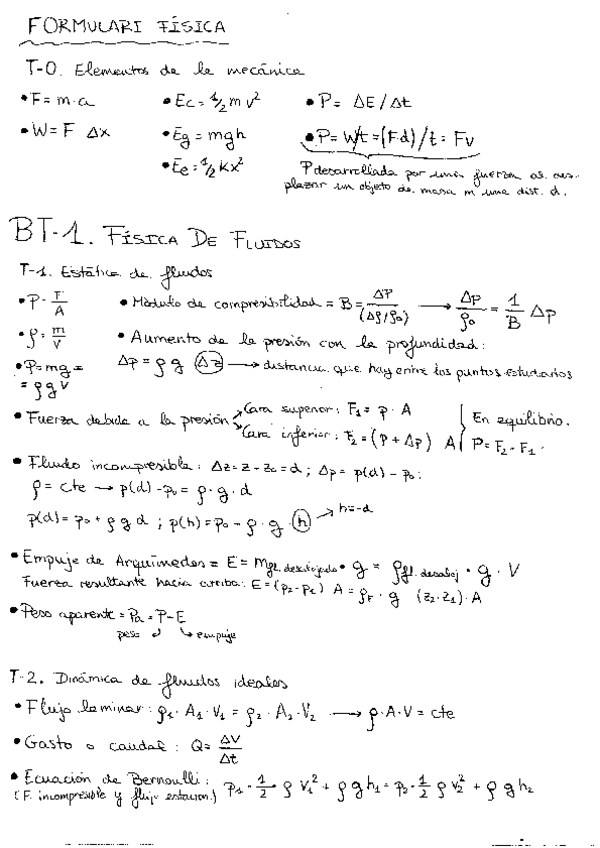 FORMULARI FÍSICA
T-0. Elementos de la mecánica
• F = m·a • Ec = 1/2 m v² • P = ΔE/Δt
• W = F Δx • Eg = mgh • P = W/t = (F·d)/t = Fv
• Ee = 1/2 Kx² P desarrollada por una fuerza al des-
plazar un objeto de masa m una dist. d.
BT-1. FÍSICA DE FLUIDOS
T-1. Estática de fluidos
• P = F/A • Módulo de compresibilidad = B = ΔP/(Δρ/ρ₀) → Δρ/ρ₀ = 1/B Δp
• ρ = m/V • Aumento de la presión con la profundidad:
• P = mg = Δp = ρ g Δz → distancia que hay entre los puntos estudiados
= ρ g V
• Fuerza debida a la presión Cara superior: F₁ = p · A En equilibrio.
Cara inferior: F₂ = (p + Δp) A P = F₂ - F₁.
• Fluido incompresible: Δz = z - z₀ = d ; Δp = p(d) - p₀ :
ρ = cte → p(d) - p₀ = ρ · g · d
p(d) = p₀ + ρ g d ; p(h) = p₀ - ρ · g · h → h = -d
• Empuje de Arquímedes = E = m fl. desalojado · g = ρ fl. desaloj · g · V
Fuerza resultante hacia arriba: E = (p₂ - p₁) A = ρF · g (z₂ - z₁) · A
• Peso aparente = Pa = P - E
peso empuje
T-2. Dinámica de fluidos ideales
• Flujo laminar: ρ₁ · A₁ · V₁ = ρ₂ · A₂ · V₂ → ρ · A · V = cte
• Gasto o caudal : Q = ΔV/Δt
• Ecuación de Bernoulli :
(F. incompresible y flujo estacion.) P₁ · 1/2 · ρ v₁² + ρ g h₁ = p₂ · 1/2 ρ v₂² + ρ g h₂